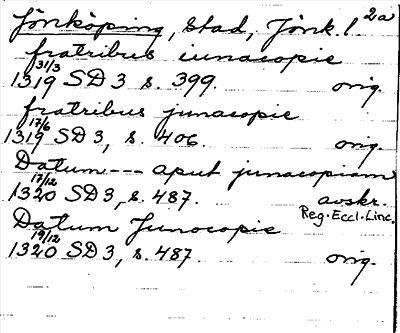 Jönköping, Stad, Jönk. l. 2a
fratribus iunacopie
31/3
1319 SD 3 s. 399. orig.
fratribus junacopie
17/6
1319 SD 3, s. 406. orig.
Datum --- aput junacopiam
17/12
1320 SD 3, s. 487. avskr.
Reg. Eccl. Linc.
Datum Junocopie
19/12
1320 SD 3, s. 487. orig.